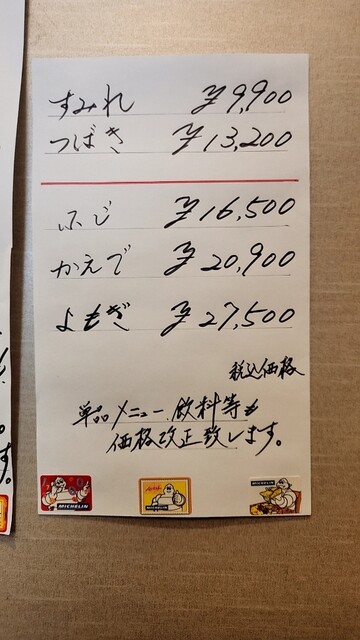 すみれ ¥9,900
つばき ¥13,200
ふじ ¥16,500
かえで ¥20,900
よもぎ ¥27,500
税込価格
単品メニュー、飲料等も
価格改正致します。
MICHELIN
MICHELIN
MICHELIN
す。